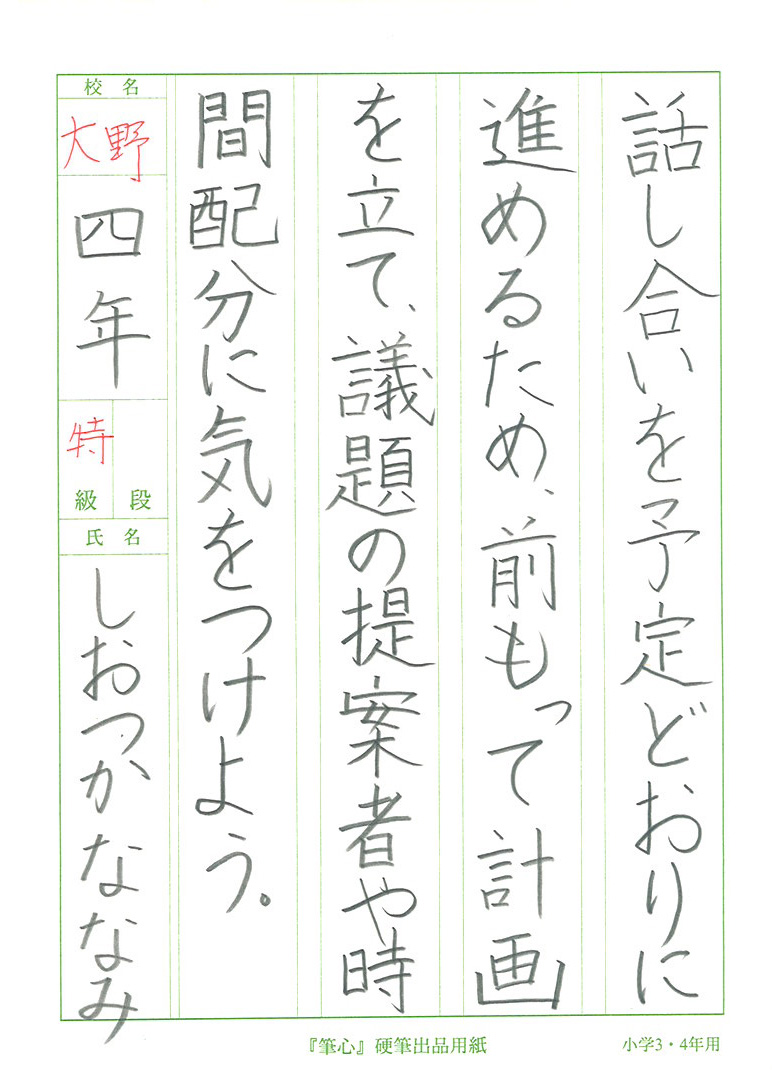 話し合いを予定どおりに
進めるため、前もって計画
を立て、議題の提案者や時
間配分に気をつけよう。
校名
大野
四年
特
級段
氏名
しおつかななみ
『筆心』硬筆出品用紙
小学3・4年用